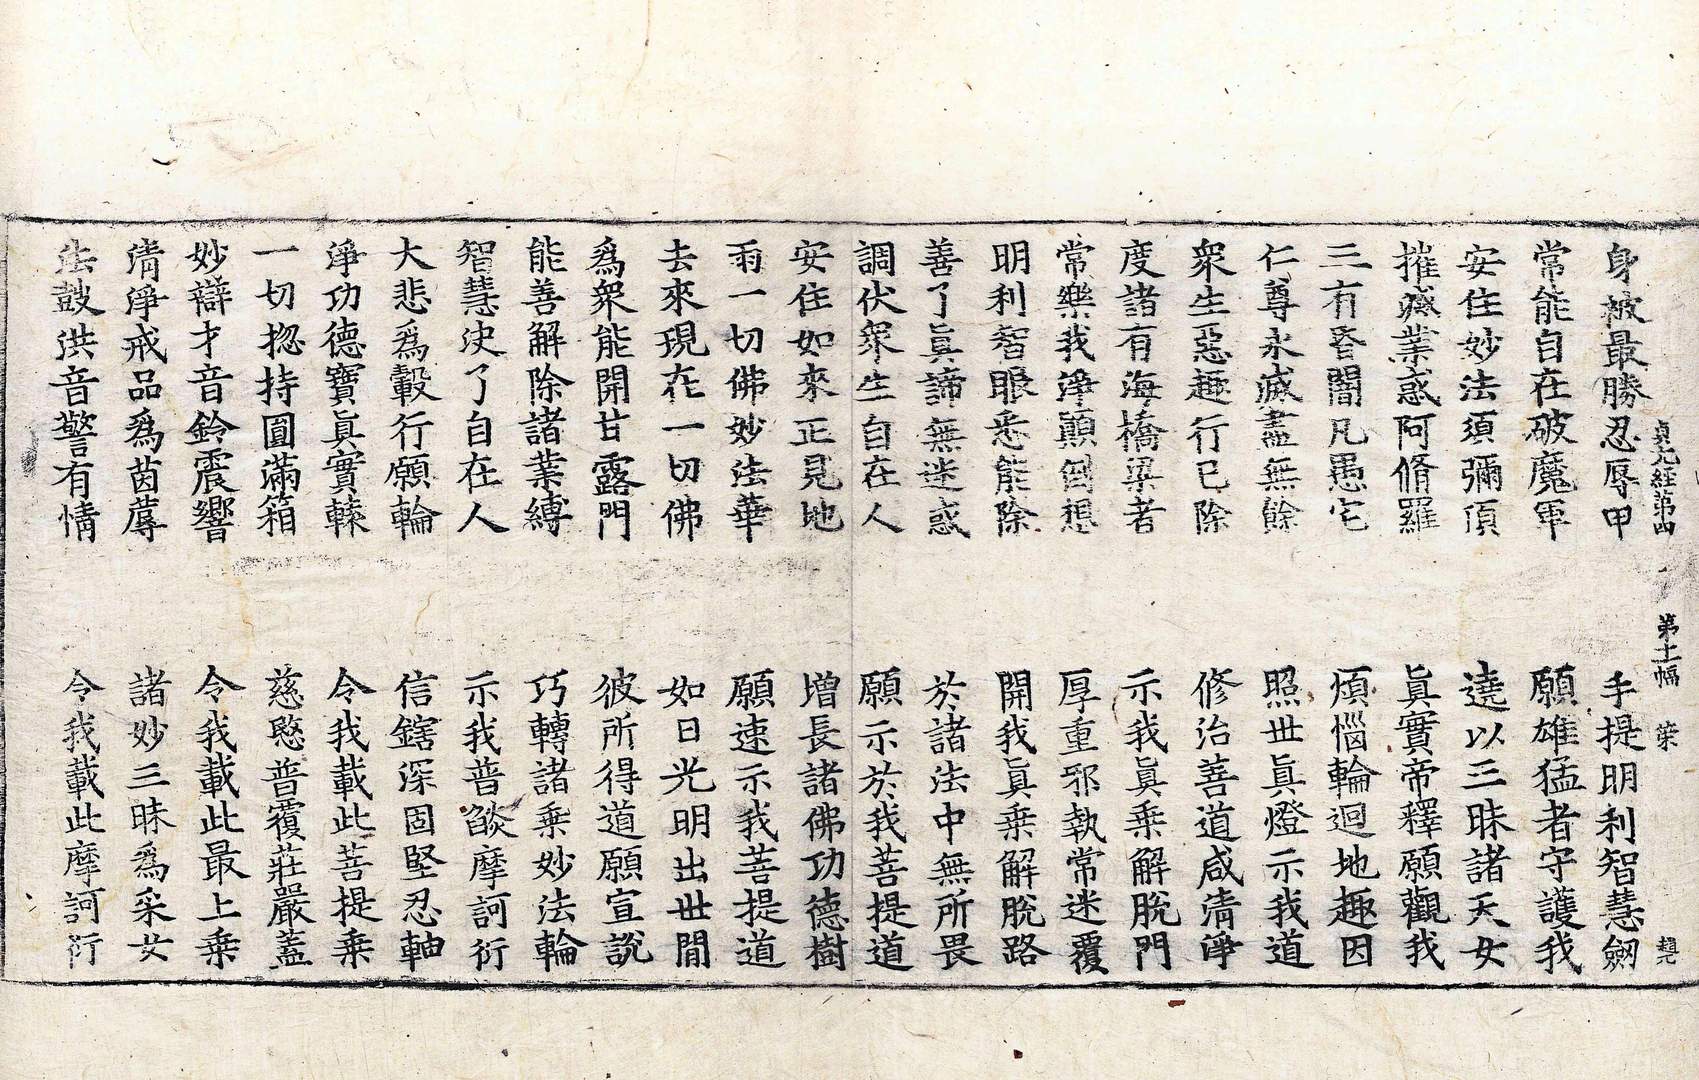 貞元經第四 第十一幅 染 趙元
身被最勝忍辱甲 手提明利智慧劒
常能自在破魔軍 願雄猛者守護我
安住妙法須彌頂 遶以三昧諸天女
摧滅業惑阿脩羅 眞實帝釋願觀我
三有昏闇凡愚宅 煩惱輪迴地趣因
仁尊永滅盡無餘 照世眞燈示我道
衆生惡趣行已除 修治善道咸清淨
度諸有海橋梁者 示我眞乗解脫門
常樂我淨顛倒想 厚重邪執常迷覆
明利智眼悉能除 開我眞乗解脫路
善了眞諦無迷惑 於諸法中無所畏
調伏衆生自在人 願示於我菩提道
安住如來正見地 增長諸佛功德樹
雨一切佛妙法華 願速示我菩提道
去來現在一切佛 如日光明出世間
爲衆能開甘露門 彼所得道願宣說
能善解除諸業縛 巧轉諸乗妙法輪
智慧決了自在人 示我普燄摩訶衍
大悲爲轂行願輪 信鎋深固堅忍軸
淨功德寶眞實轃 令我載此菩提乗
一切揔持圓滿箱 慈愍普覆莊嚴蓋
妙辯才音鈴震響 令我載此最上乗
清淨戒品爲茵蓐 諸妙三昧爲采女
法鼓洪音警有情 令我載此摩訶衍